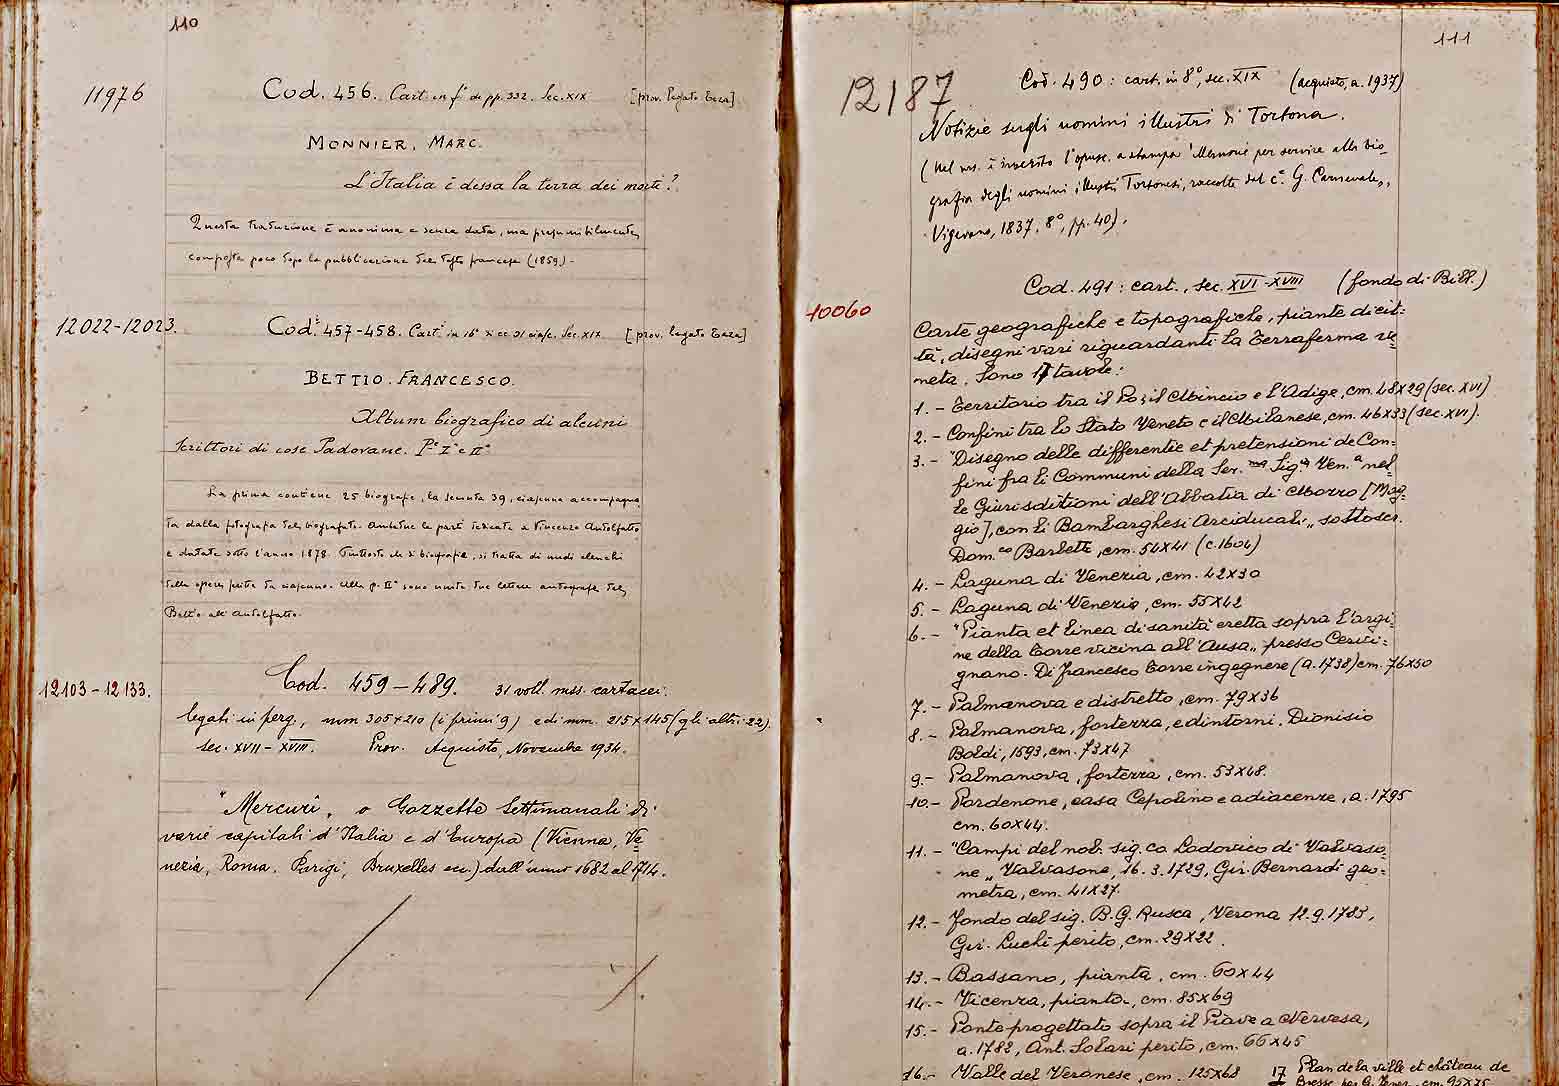 110
11976
Cod. 456. Cart. in fº di pp. 332. Sec. XIX [prov. legato Teza]
MONNIER, MARC.
L'Italia è dessa la terra dei morti?
Questa traduzione è anonima e senza data, ma presumibilmente
composta poco dopo la pubblicazione del testo francese (1859).-
12022-12023.
Cod. 457-458. Cart. in 16º cc 91 ciasc. Sec. XIX. [prov. legato Teza]
BETTIO. FRANCESCO.
Album biografico di alcuni
scrittori di cose Padovane. Pe Iª e IIª
La prima contiene 25 biografie, la seconda 39, ciascuna accompagna
ta dalla fotografia del biografato. Ambedue le parti dedicate a Vincenzo
e datate sotto l'anno 1878. Piuttosto che di biografie, si tratta di nudi elenchi
delle opere scritte da ciascuno. Alla p. IIª sono unite due lettere autografe del
12103-12133.
Cod. 459-489. 31 voll. mss. cartacei.
legati in perg., mm 305x210 (i primi 9) e di mm. 215x145 (gli altri 22)
sec. XVII-XVIII. Prov. Acquisto, Novembre 1934.
"Mercuri" o Gazzette settimanali di
varie capitali d'Italia e d'Europa (Vienna, Ve=
nezia, Roma, Parigi, Bruxelles ecc.) dall'anno 1682 al 1714.
111
12187
Cod. 490: cart. in 8º, sec. XIX (acquisto, a. 1937)
Notizie sugli uomini illustri di Tortona.
(Nel ms. è inserito l'opusc. a stampa "Memorie per servire alla bio-
grafia degli uomini illustri Tortonesi, raccolte dal cº. G. Carnevale",
Vigevano, 1837, 8º, pp. 40).
10060
Cod. 491: cart., sec. XVI-XVIII (fondo di Bibl.)
Carte geografiche e topografiche, piante di cit=
tà, disegni vari riguardanti la Terraferma ve=
neta. Sono 17 tavole:
1.- Territorio tra il Po, il Mincio e l'Adige, cm. 48x29 (sec. XVI)
2.- Confini tra lo Stato Veneto e il Milanese, cm. 46x33 (sec. XVI).
3.- "Disegno delle differentie et pretensioni de Con=
fini fra li Communi della Ser.ma Sig.a Ven.a nel=
le Giurisditioni dell'Abbatia di Mozzo [Mog=
gio], con li Bambarghesi Arciducali" sottoscr.
Dom.co Barbette, cm. 54x41 (c. 1604)
4.- Laguna di Venezia, cm. 42x30
5.- Laguna di Venezia, cm. 55x42
6.- "Pianta et linea di sanità eretta sopra l'argi=
ne della torre vicina all'Ausa" presso Cervi=
gnano. Di Francesco Torre ingegnere (a. 1738) cm. 76x50
7.- Palmanova e distretto, cm. 79x36
8.- Palmanova, fortezza, e dintorni. Dionisio
Boldi, 1593, cm. 73x47
9.- Palmanova, fortezza, cm. 53x48.
10.- Pordenone, casa Cepolino e adiacenze, a. 1795
cm. 60x44.
11.- "Campi del nob. sig. co Lodovico di Valvaso=
ne" Valvasone, 16.3.1729, Gir. Bernardi geo=
metra, cm. 41x27.
12.- Fondo del sig. B. G. Rusca, Verona 12.9.1783,
Gir. Luchi perito, cm. 29x22.
13.- Bassano, pianta, cm. 60x44
14.- Vicenza, pianta, cm. 85x69
15.- Ponte progettato sopra il Piave a Nervesa,
a. 1782, Ant. Solari perito, cm. 66x45
16.- Valle del Veronese, cm. 125x68
17 Plan de la ville et château de
Bresse, cm. 95x75